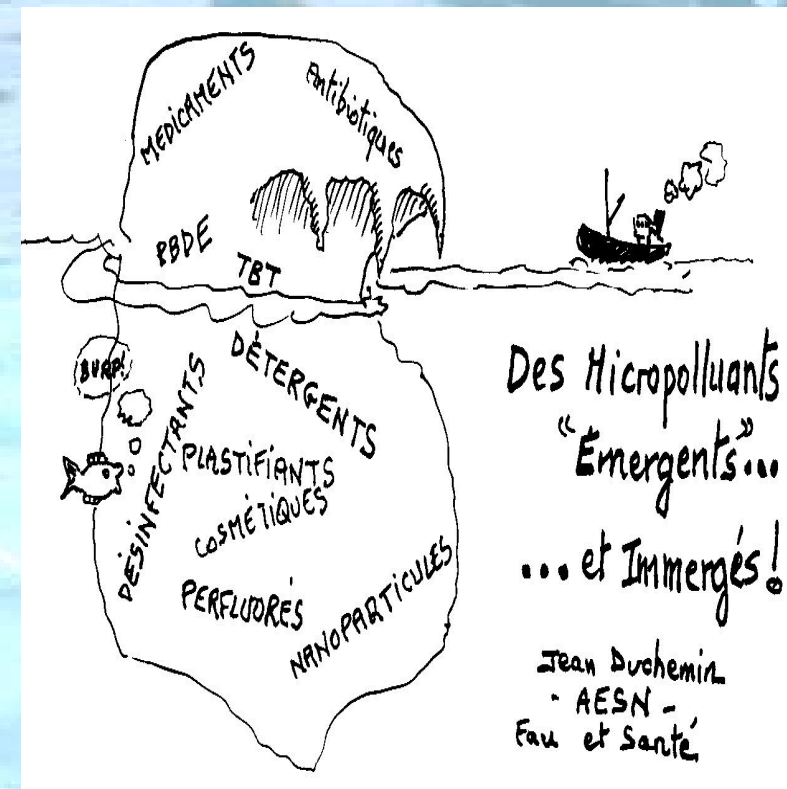 MEDICAMENTS
Antibiotiques
PBDE
TBT
BURP!
DÉTERGENTS
DÉSINFECTANTS
PLASTIFIANTS
COSMÉTIQUES
PERFLUORÉS
NANOPARTICULES
Des Micropolluants
"Émergents"...
... et Immergés!
Jean Duchemin
- AESN -
Eau et Santé